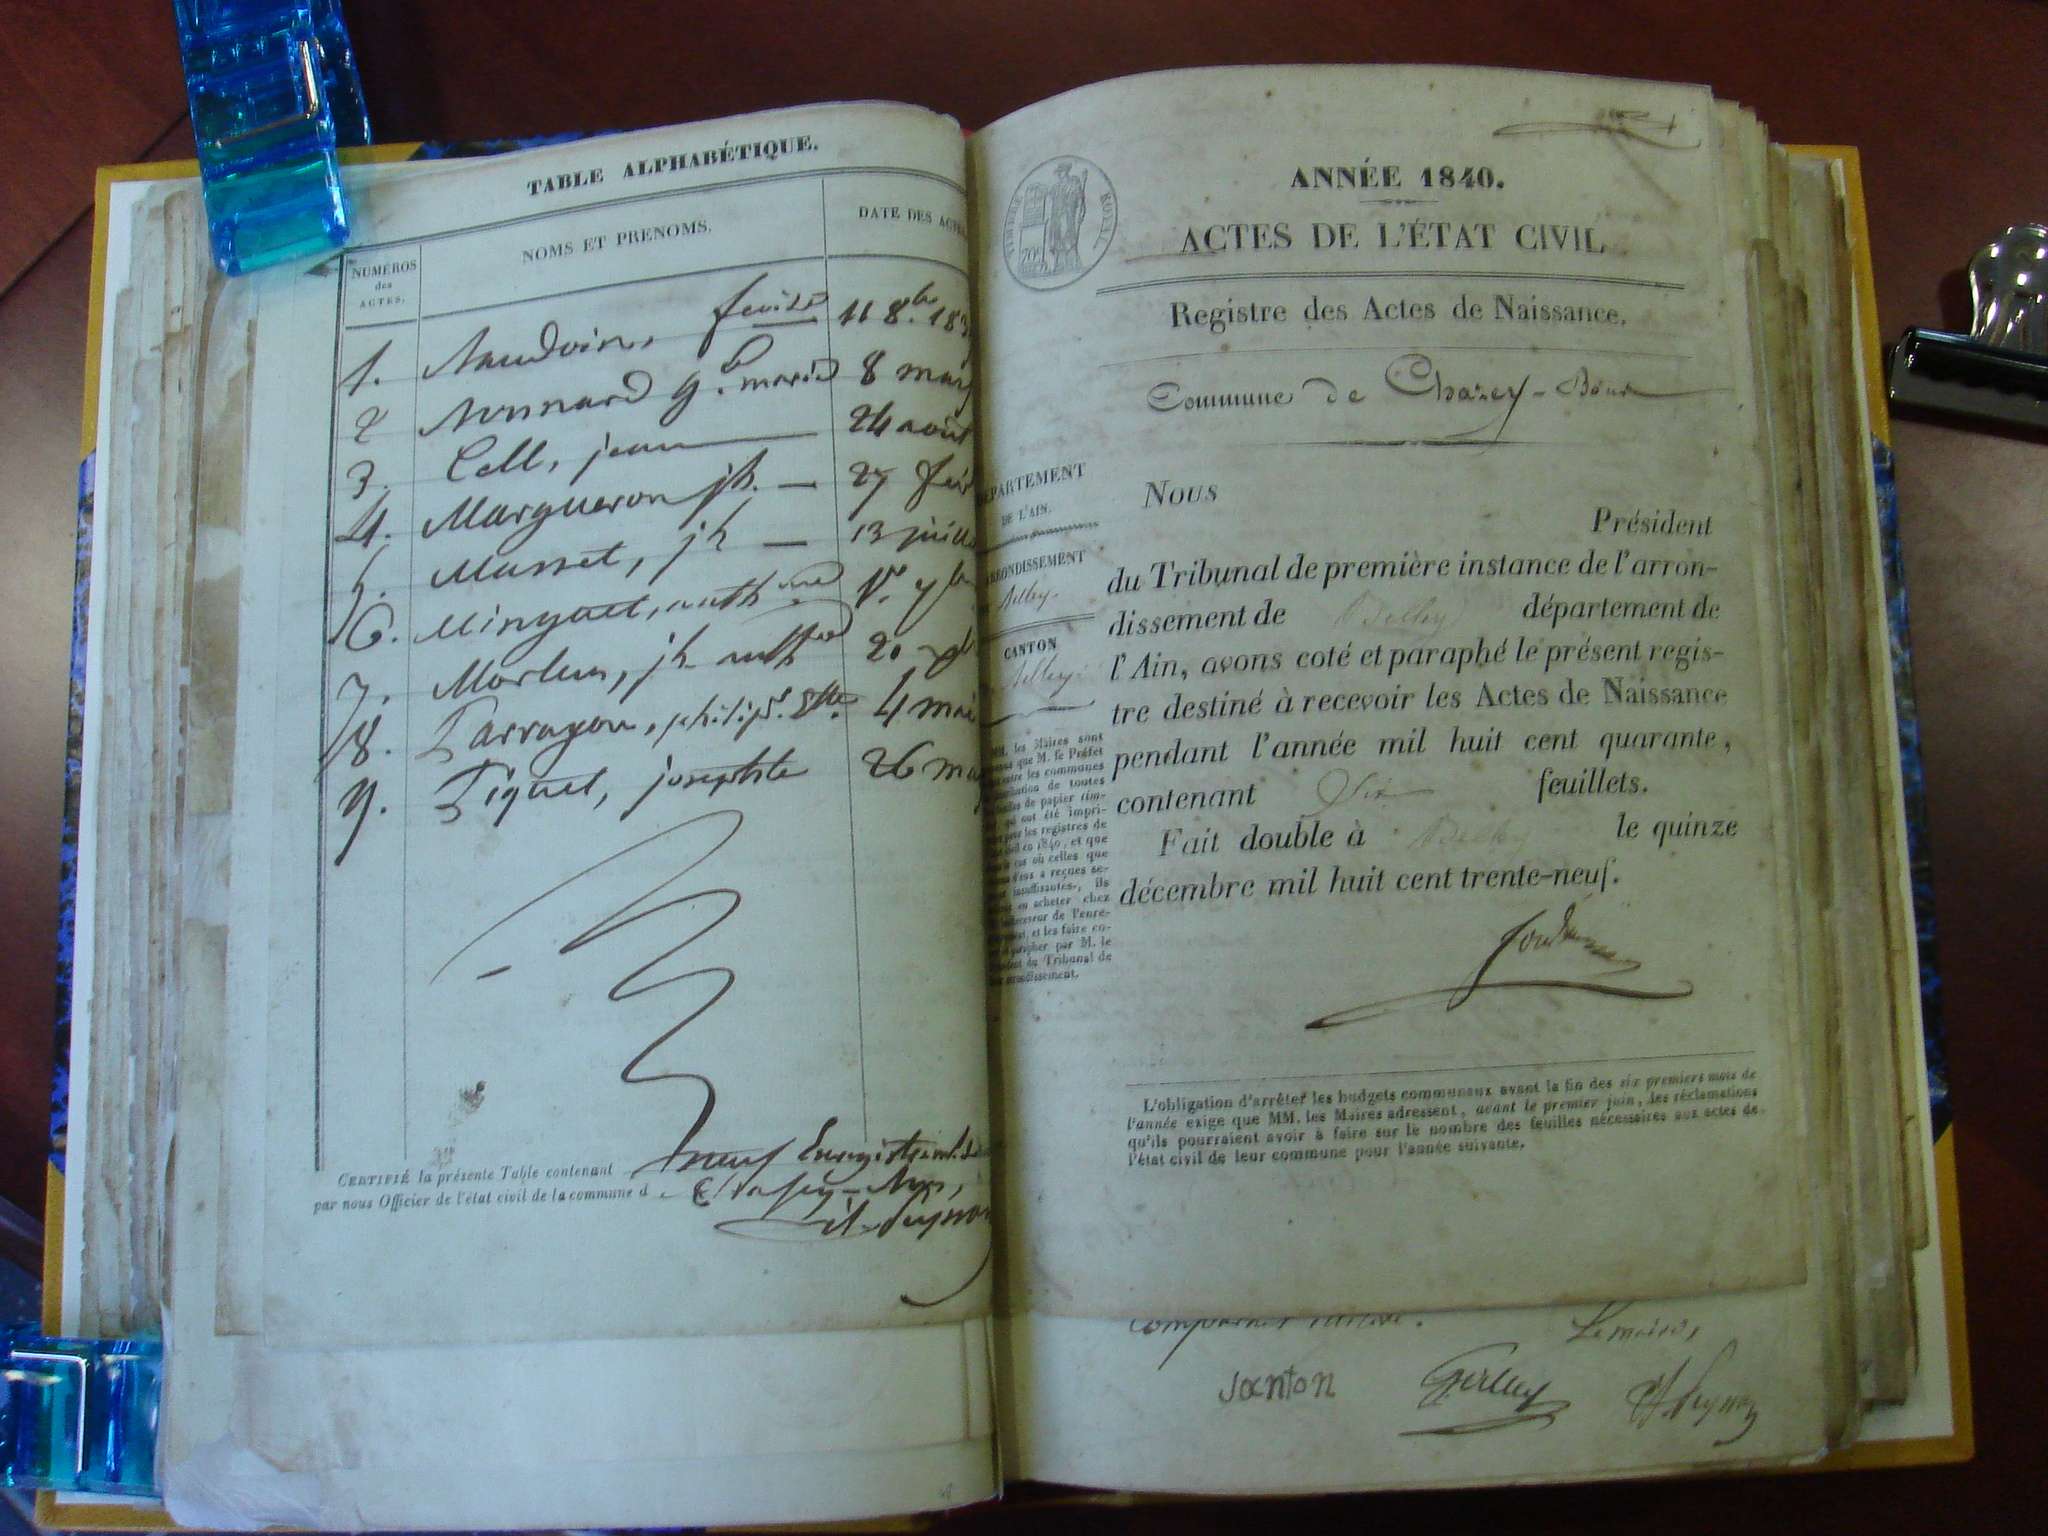 TABLE ALPHABÉTIQUE.
NUMÉROS
des
ACTES.
NOMS ET PRENOMS.
DATE DES ACTES
1. Naudvin, 11 8bre 183
2 g. marie 8 mars
3. Cell, jean 24 août
4. Margueron jh. 27 fév
5. Masset, jh 13 juill
6. Minguet, anth 1er 7b
7. Morlun, jh anth 20
8. Tarragon, 4 mai
9. Tiguet, josephte 26 ma
CERTIFIÉ la présente Table contenant neuf
par nous Officier de l'état civil de la commune d
ANNÉE 1840.
ACTES DE L'ÉTAT CIVIL
ROYAL
70c
Registre des Actes de Naissance.
Commune de Chazey-Bons
DÉPARTEMENT
DE L'AIN.
ARRONDISSEMENT
Belley.
CANTON
Belley
MM. les Maires sont
que M. le Préfet
entre les communes
de toutes
de papier tim-
qui ont été impri-
pour les registres de
civil en 1840, et que
cas où celles que
d'eux a reçues se-
insuffisantes, ils
en acheter chez
de l'enre-
et les faire co-
parapher par M. le
du Tribunal de
arrondissement.
Nous
Président
du Tribunal de première instance de l'arron-
dissement de Belley département de
l'Ain, avons coté et paraphé le présent regis-
tre destiné à recevoir les Actes de Naissance
pendant l'année mil huit cent quarante,
contenant Six feuillets.
Fait double à Belley le quinze
décembre mil huit cent trente-neuf.
L'obligation d'arrêter les budgets communaux avant la fin des six premiers mois de
l'année exige que MM. les Maires adressent, avant le premier juin, les réclamations
qu'ils pourraient avoir à faire sur le nombre des feuilles nécessaires aux actes de
l'état civil de leur commune pour l'année suivante.
Le maire,
Janton